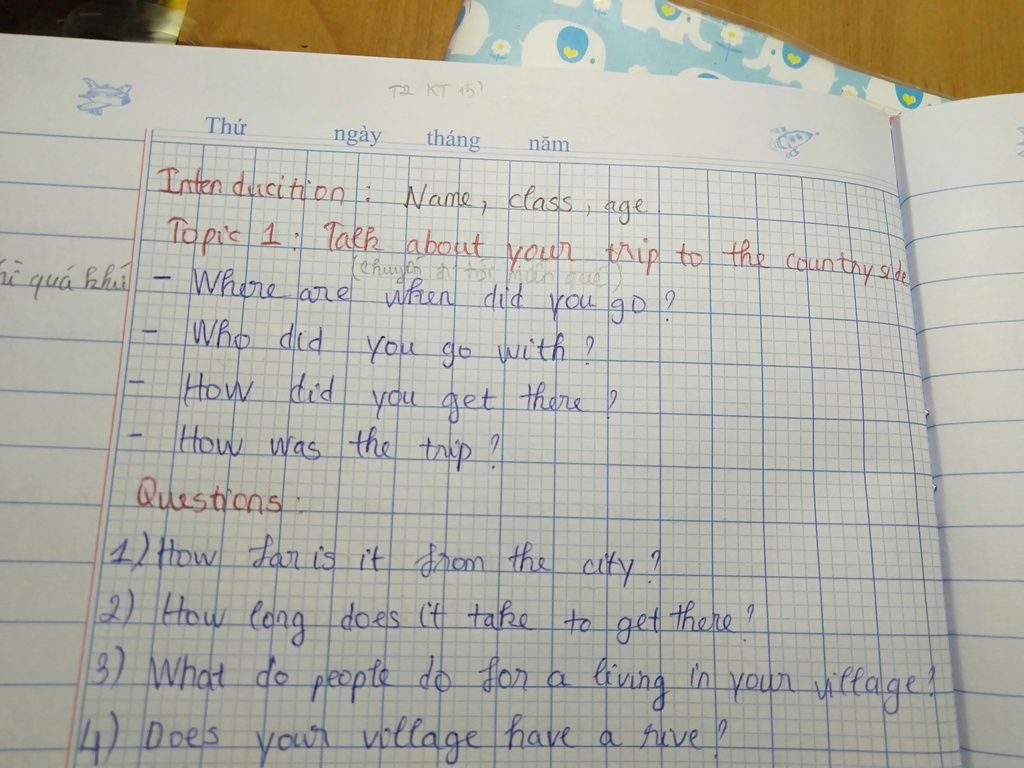 T2 KT 15'
Thứ ngày tháng năm
Intenducition : Name, class, age
Topic 1 : Talk about your trip to the countryside
(chuyến đi tới miền quê)
quá khứ
- Where are when did you go ?
- Who did you go with ?
- How did you get there ?
- How was the trip ?
Questions :
1) How far is it from the city ?
2) How long does it take to get there ?
3) What do people do for a living in your village ?
4) Does your village have a rive ?